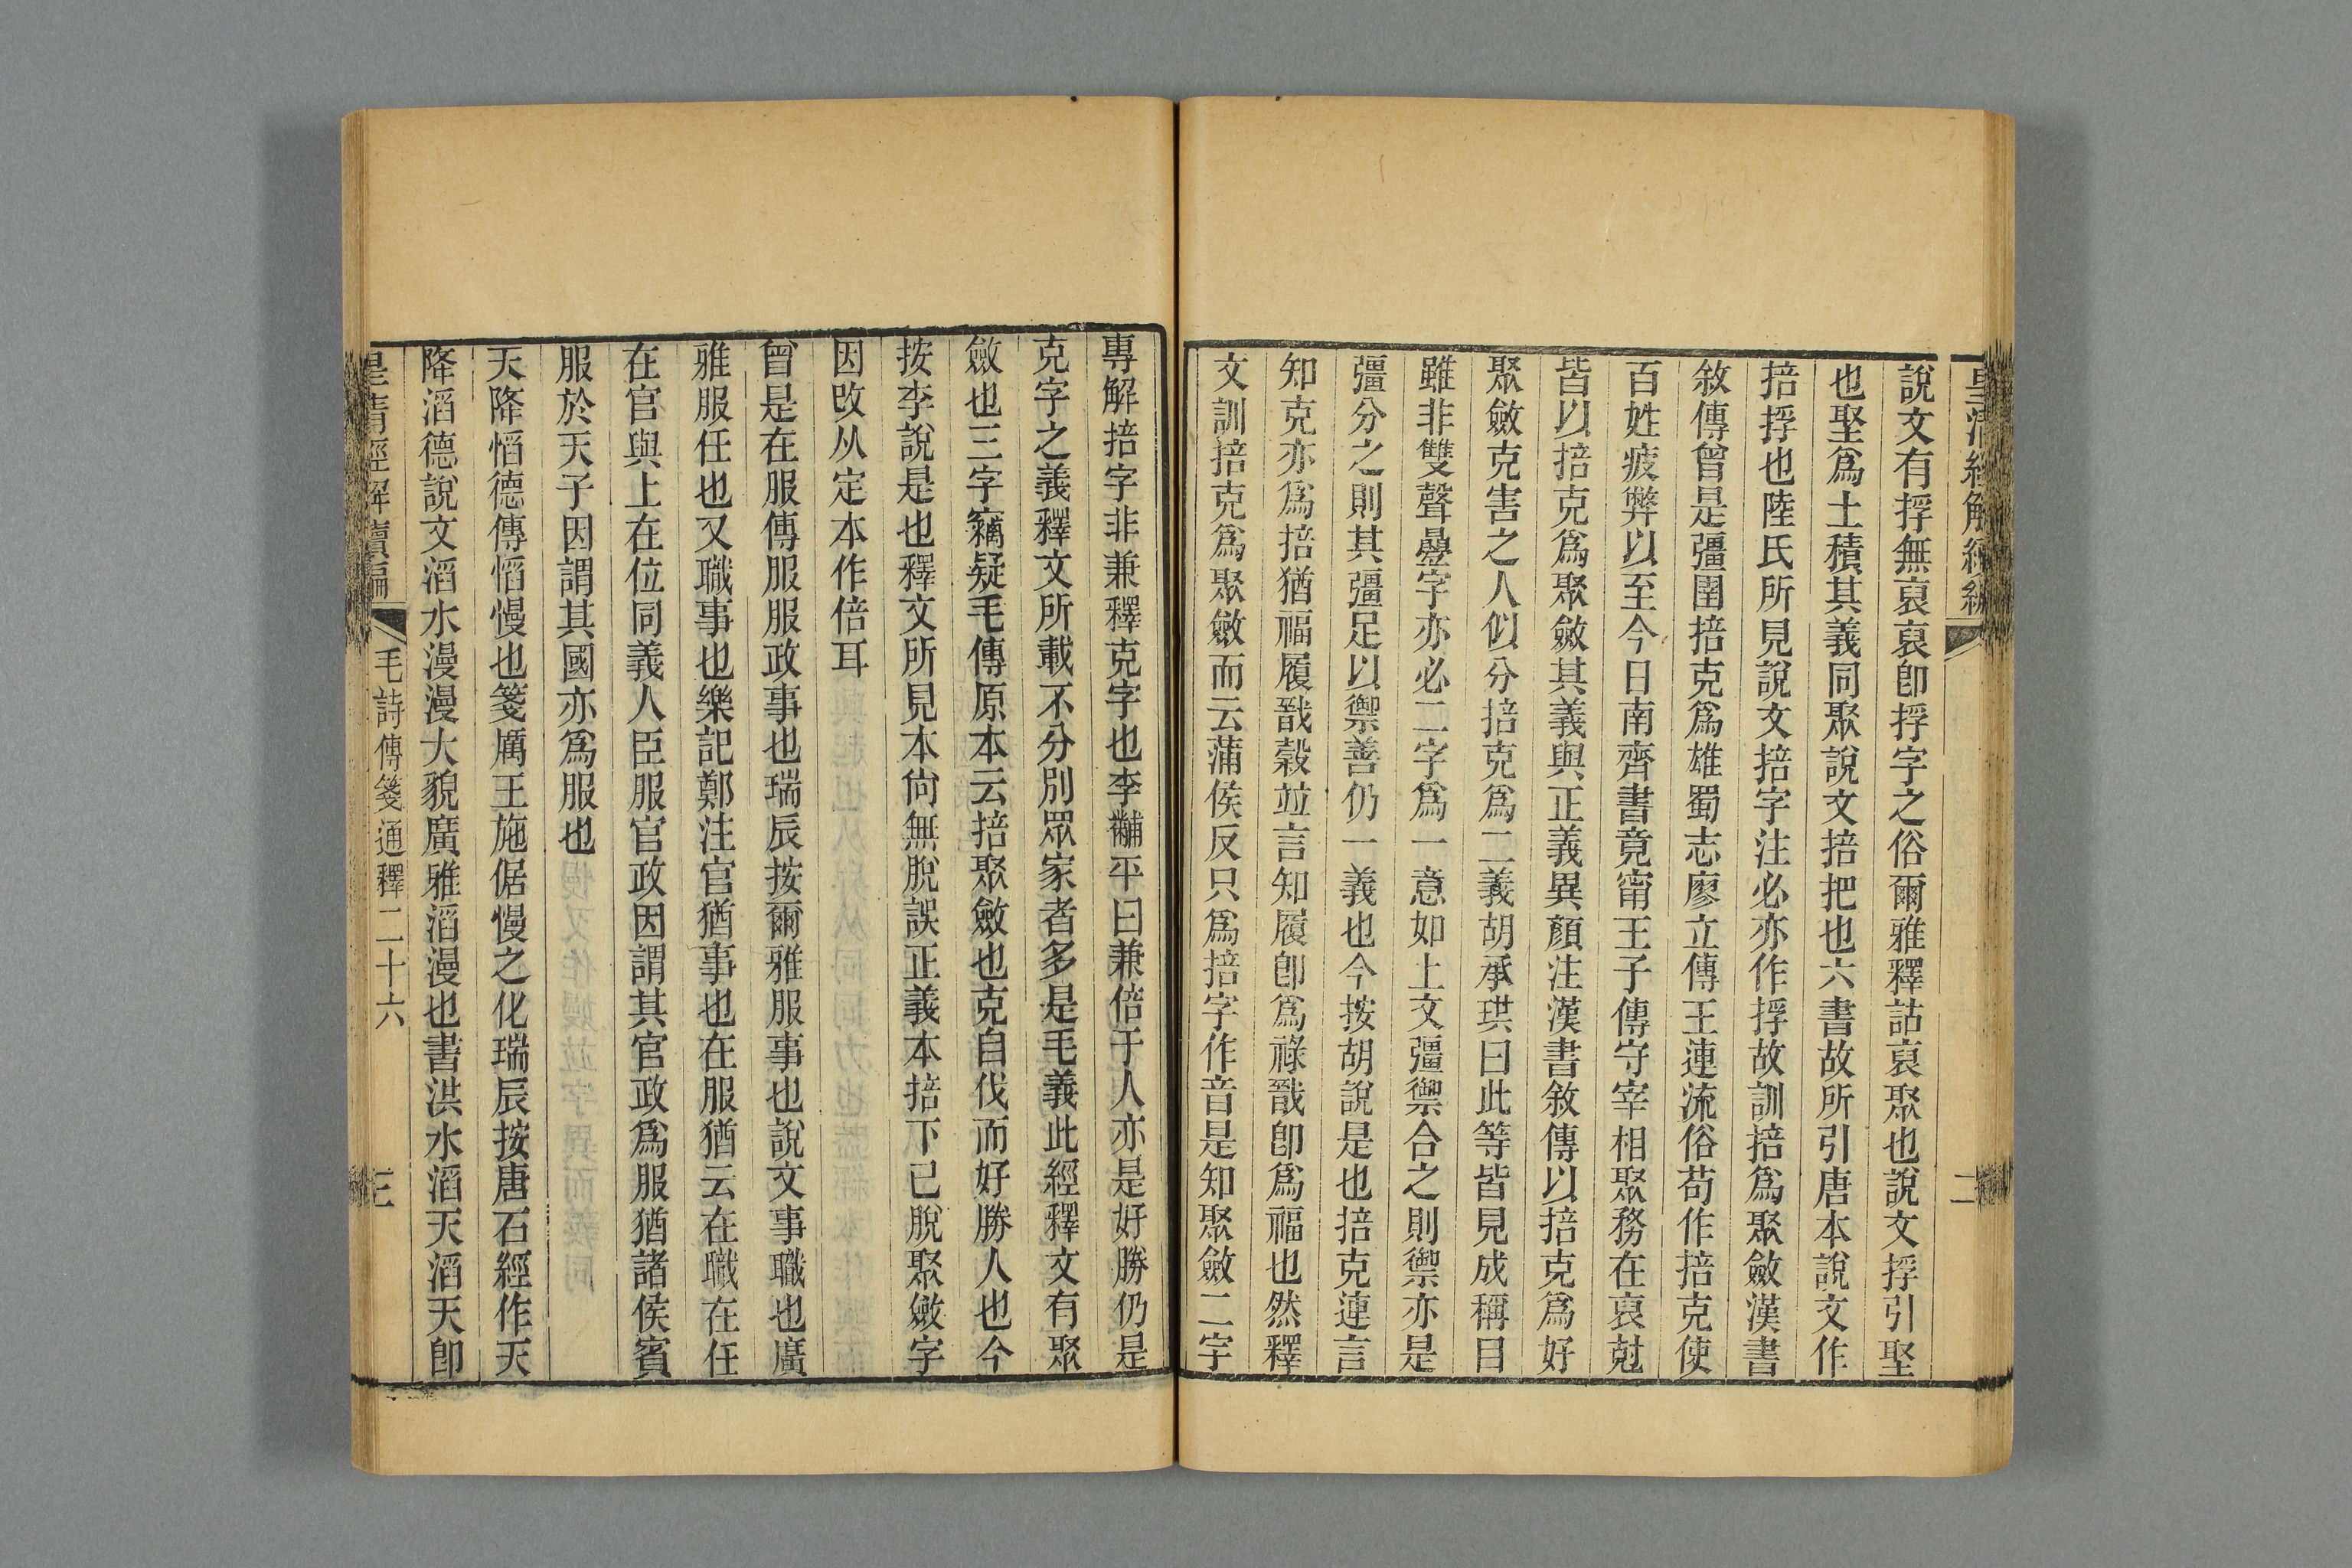 皇清經解續編
二
說文有捊無裒裒卽捊字之俗爾雅釋詁裒聚也說文捊引堅
也堅爲土積其義同聚說文掊把也六書故所引唐本說文作
掊捊也陸氏所見說文掊字注必亦作捊故訓掊爲聚斂漢書
敘傳曾是彊圉掊克爲雄蜀志廖立傳王連流俗苟作掊克使
百姓疲弊以至今日南齊書竟甯王子傳守宰相聚務在裒尅
皆以掊克爲聚斂其義與正義異顏注漢書敘傳以掊克爲好
聚斂克害之人似分掊克爲二義胡承珙曰此等皆見成稱目
雖非雙聲疊字亦必二字爲一意如上文彊禦合之則禦亦是
彊分之則其彊足以禦善仍一義也今按胡說是也掊克連言
知克亦爲掊猶福履戩穀竝言知履卽爲祿戩卽爲福也然釋
文訓掊克爲聚斂而云蒲侯反只爲掊字作音是知聚斂二字
專解掊字非兼釋克字也李黼平曰兼倍于人亦是好勝仍是
克字之義釋文所載不分別眾家者多是毛義此經釋文有聚
斂也三字竊疑毛傳原本云掊聚斂也克自伐而好勝人也今
按李說是也釋文所見本尙無脫誤正義本掊下已脫聚斂字
因改从定本作倍耳
曾是在服傳服服政事也瑞辰按爾雅服事也說文事職也廣
雅服任也又職事也樂記鄭注官猶事也在服猶云在職在任
在官與上在位同義人臣服官政因謂其官政爲服猶諸侯賓
服於天子因謂其國亦爲服也
天降慆德傳慆慢也箋厲王施倨慢之化瑞辰按唐石經作天
降滔德說文滔水漫漫大貌廣雅滔漫也書洪水滔天滔天卽
皇清經解續編
毛詩傳箋通釋二十六
三